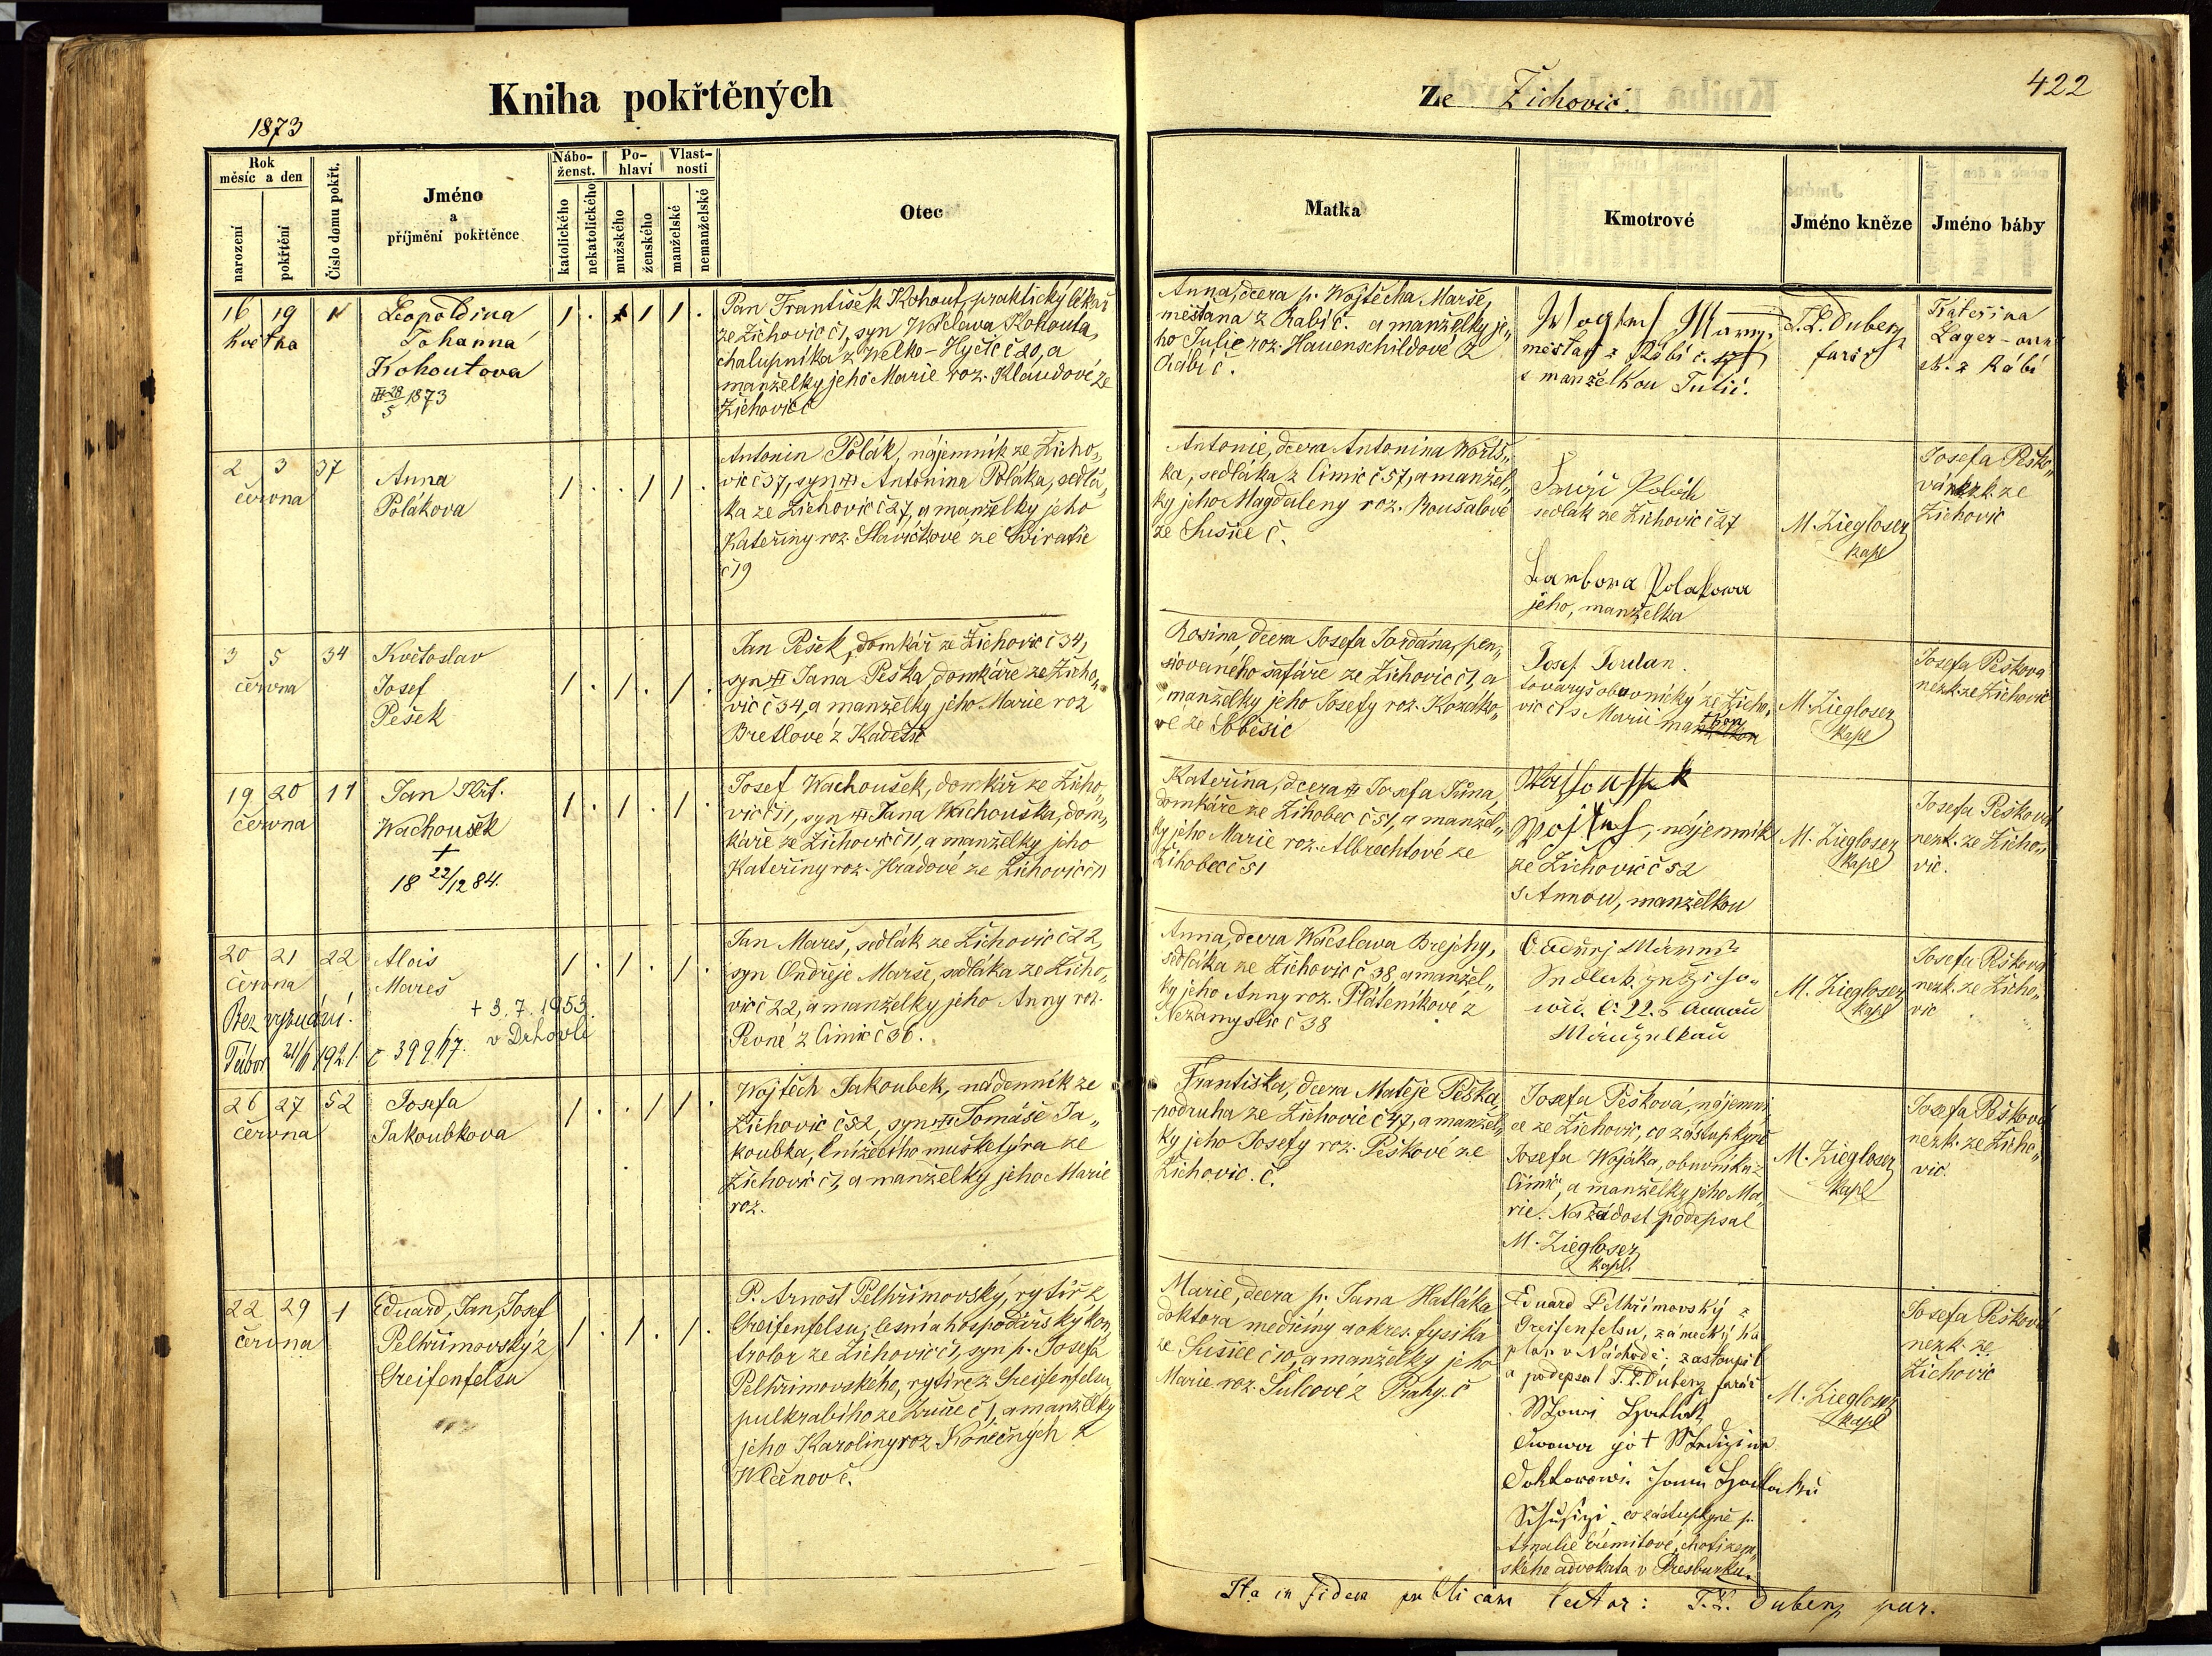 Kniha pokřtěných
Ze Žichovic.
422
1873
Rok
měsíc a den
narození
pokřtění
Číslo domu pokřt.
Jméno
a
příjmění pokřtěnce
Nábo-
ženst.
katolického
nekatolického
Po-
hlaví
mužského
ženského
Vlast-
nosti
manželské
nemanželské
Otec
Matka
Kmotrové
Jméno kněze
Jméno báby
16 19 1
května
Leopoldina
Johanna
Kohoutova
28/5 1873
1 . . 1 1 .
Pan František Kohout, praktický lékař
ze Žichovic č 1, syn Wáclava Kohouta,
chalupníka z Welko-Hyčic č 20, a
manželky jeho Marie roz. Klaudové ze
Žichovic č
Anna, dcera p. Wojtěcha Marše,
měšťana z Rabí č. a manželky je„
ho Julie roz. Hauenschildové z
Rábí č.
měšťan z Rábí č.
s manželkou Julií.
T. L. Duberz
farář
Kateřina
Lager
z Rábí
2 3 37
června
Anna
Polákova
1 . . 1 1 .
Antonin Polák, nájemník ze Žicho„
vic č 37, syn Antonina Poláka, sedlá„
ka ze Žichovic č 27, a manželky jeho
Kateřiny roz. Slavíčkové ze
č 19
Antonie, dcera Antonína
ka, sedláka z Čimic č 57, a manžel„
ky jeho Magdaleny roz. Boušalové
ze Sušice č.
Polák
sedlák ze Žichovic č 27
Barbora Polakowa
jeho, manželka
M. Ziegloser
kapl
Josefa Peško„
vá nezk. ze
Žichovic
3 5 34
června
Květoslav
Josef
Pešek
1 . 1 . 1 .
Jan Pešek, domkář ze Žichovic č 34,
syn Jana Peška, domkáře ze Žicho„
vic č 34, a manželky jeho Marie roz
Bretlové z Kadešic
Rosina, dcera Josefa Jordána, pen„
siovaného šafáře ze Žichovic č 1, a
manželky jeho Josefy roz. Kozáko„
vé ze Soběšic
Josef Jordan.
tovaryš obuvnický ze Žicho„
vic č 1 s Marií
M. Ziegloser
kapl
Josefa Pešková
nezk. ze Žichovic
19 20 11
června
Jan Křt.
Wachoušek
+
18 22/12 84.
1 . 1 . 1 .
Josef Wachoušek, domkář ze Žicho„
vic č 11, syn Jana Wachouška, dom„
káře ze Žichovic č 11, a manželky jeho
Kateřiny roz. Hradové ze Žichovic č 11
Kateřina, dcera Josefa Tůma,
domkáře ze Žihobec č 51, a manžel„
ky jeho Marie roz. Albrechtové ze
Žihobec č 51
nájemník
ze Žichovic č 52
s Annou, manželkou
M. Ziegloser
kapl
Josefa Pešková
nezk. ze Žicho„
vic.
20 21 22
června
Alois
Mareš
+ 3. 7. 1953.
v Drhovle
Bez vyznání.
Tábor 1921. č 39967.
1 . 1 . 1 .
Jan Mareš, sedlák ze Žichovic č 22,
syn Ondřeje Marše, sedláka ze Žicho„
vic č 22, a manželky jeho Anny roz.
Pevné z Čimic č 36.
Anna, dcera Wácslava Brejchy,
sedláka ze Žichovic č 38, a manžel„
ky jeho Anny roz. Pláteníkové z
Nezamyslic č 38
č. 22. s Annau
Manzelkau
M. Ziegloser
kapl
Josefa Pešková
nezk. ze Žicho„
vic
26 27 52
června
Josefa
Jakoubkova
1 . . 1 1 .
Wojtěch Jakoubek, nádenník ze
Žichovic č 52, syn Tomáše Ja„
koubka, knížecího mušketýra ze
Žichovic č 1, a manželky jeho Marie
roz.
Františka, dcera Matěje Peška
podruha ze Žichovic č 47, a manžel„
ky jeho Josefy roz. Peškové ze
Žichovic. č.
Josefa Pešková, nájemni
ce ze Žichovic, co zástupkyně
Josefa Wojáka, obuvníka z
Čimic, a manželky jeho Ma„
rie. Na žádost podepsal
M. Ziegloser
kapl.
M. Ziegloser
kapl
Josefa Pešková
nezk. ze Žicho„
vic.
22 29 1
června
Eduard, Jan, Josef
Pelhřimovský z
Greifenfelsu
1 . 1 . 1 .
P. Arnošt Pelhřimovský, rytíř z
Greifenfelsu, lesní a hospodářský kon„
trolor ze Žichovic č 1, syn p. Josefa
Pelhřimovského, rytíře z Greifenfelsu,
purkrabího ze č 1, a manželky
jeho Karoliny roz. Konečných z
Wlčnov č.
Marie, dcera p. Jana Hatláka
doktora medicíny a okres. fysika
ze Sušice č 10, a manželky jeho
Marie roz. Šulcové z Prahy. č
Eduard Pelhřimovský z
Greifenfelsu, zámecký ka
plan v Náchodě: zastoupil
a podepsal T. L. Duberz farář
co zástupkyně p.
Amalie
ského advokata v Presburku.
M. Ziegloser
kapl
Josefa Pešková
nezk. ze
Žichovic
Ita in fidem publicam testor: T. L. Duberz par.